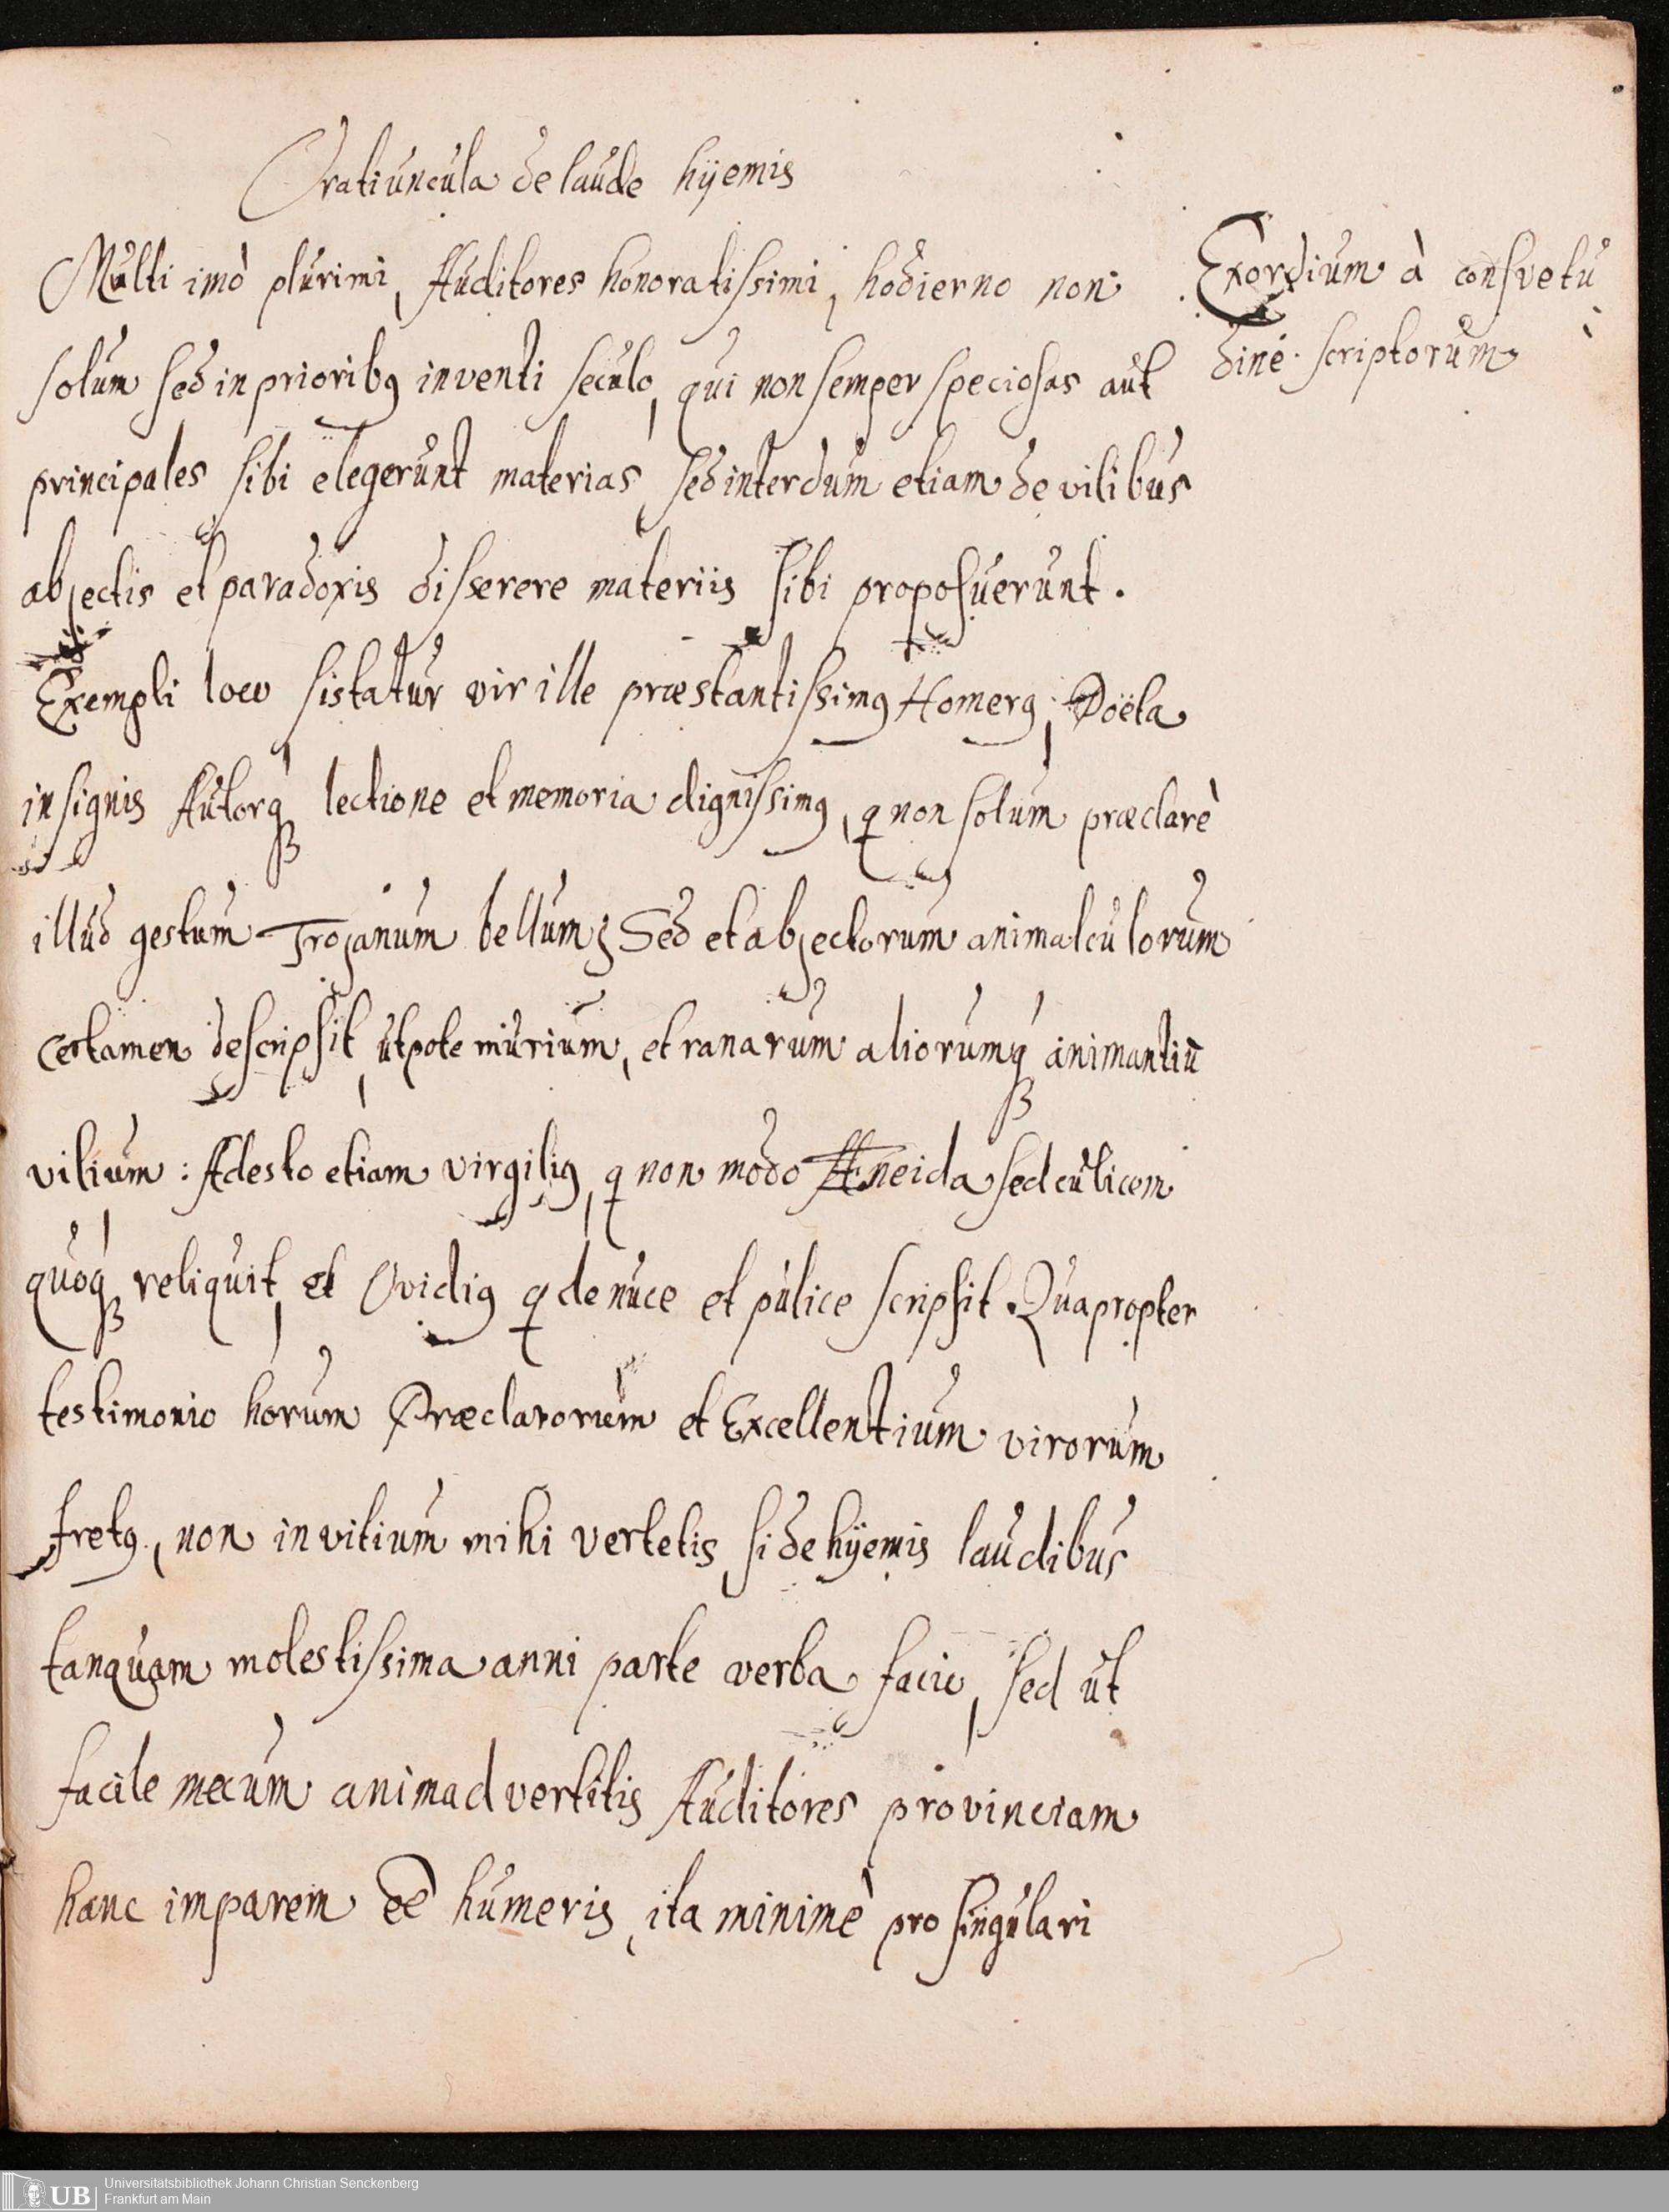 Oratiuncula de laude hÿemis
Multi imò plurimi, Auditores honoratissimi, hodierno non
solum sed in prioribꝰ inventi seculo, qui non semper speciosas aut
principales sibi elegerunt materias, sed interdum etiam de vilibus
abjectis et paradoxis disserere materiis sibi proposuerunt.
Exempli loco sistatur vir ille præstantissimꝰ Homerꝰ, Poëta
insignis Autorqꝫ lectione et memoria dignissimꝰ, q non solum præclarè
illud gestum Trojanum bellum; Sed et abjectorum animalculorum
certamen descripsit, utpote murium, et ranarum aliorumqꝫ animantiū
vilium: Adesto etiam virgiliꝰ, q non modo Æneida sed culicem
quoqꝫ reliquit, et Ovidiꝰ q de nuce et pulice scripsit. Quapropter
testimonio horum Præclarorum et Excellentium virorum
fretꝰ, non in vitium mihi vertetis, si de hÿemis laudibus
tanquam molestissima anni parte verba facio, sed ut
facile mecum animadvertitis Auditores provinciam
hanc imparem eē humeris, ita minimè pro singulari
Exordium à consvetu
dine scriptorum
Universitätsbibliothek Johann Christian Senckenberg
Frankfurt am Main
UB